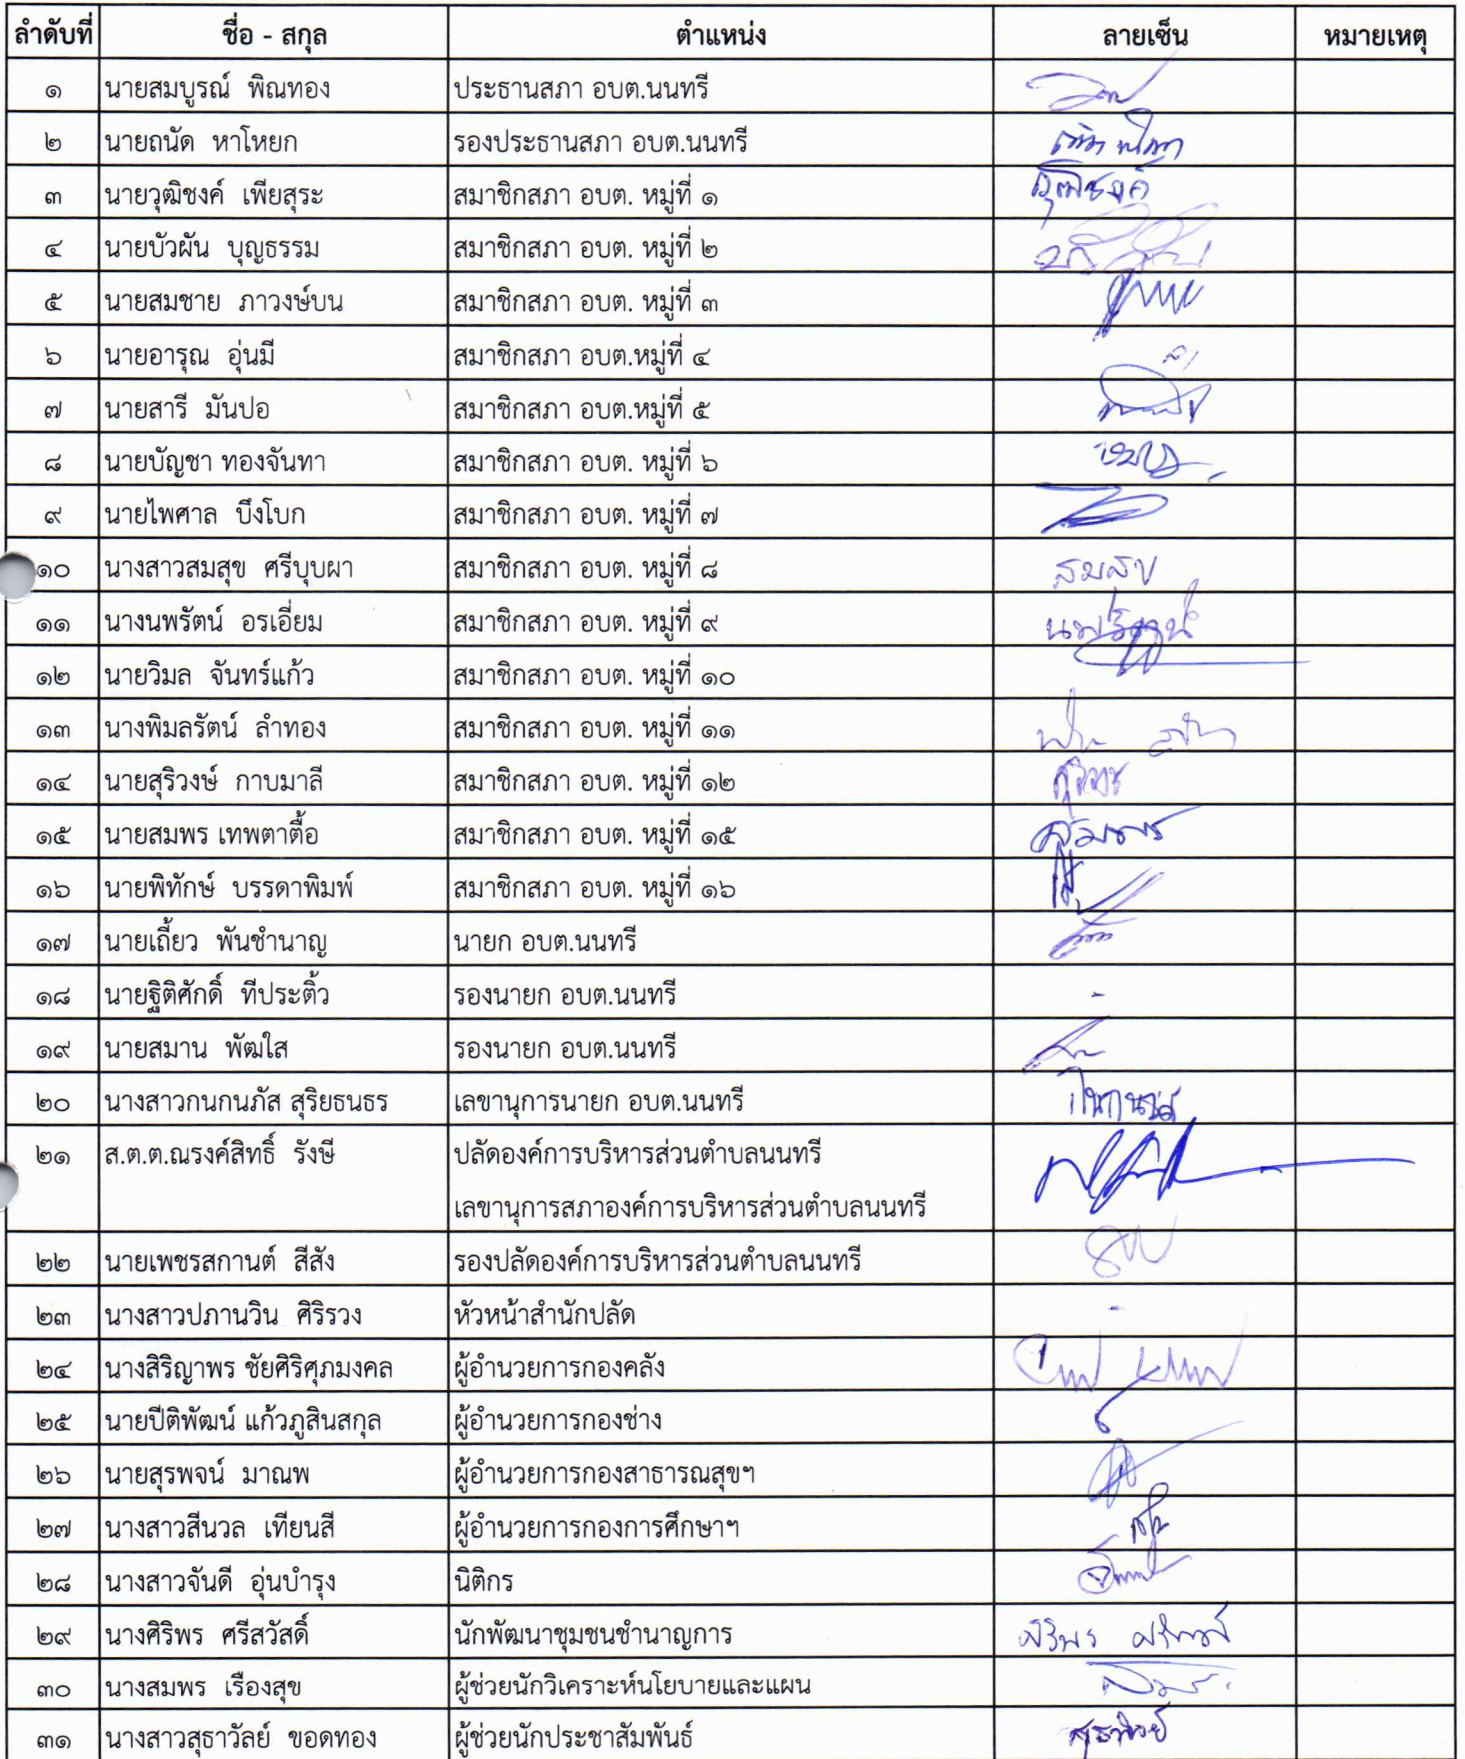 ลำดับที่ ชื่อ - สกุล ตำแหน่ง ลายเซ็น หมายเหตุ
๑ นายสมบูรณ์ พิณทอง ประธานสภา อบต.นนทรี
๒ นายถนัด หาโหยก รองประธานสภา อบต.นนทรี
๓ นายวุฒิชงค์ เพียสุระ สมาชิกสภา อบต. หมู่ที่ ๑ วุฒิชงค์
๔ นายบัวผัน บุญธรรม สมาชิกสภา อบต. หมู่ที่ ๒
๕ นายสมชาย ภาวงษ์บน สมาชิกสภา อบต. หมู่ที่ ๓
๖ นายอารุณ อุ่นมี สมาชิกสภา อบต.หมู่ที่ ๔
๗ นายสารี มันปอ สมาชิกสภา อบต.หมู่ที่ ๕
๘ นายบัญชา ทองจันทา สมาชิกสภา อบต. หมู่ที่ ๖
๙ นายไพศาล บึงโบก สมาชิกสภา อบต. หมู่ที่ ๗
๑๐ นางสาวสมสุข ศรีบุบผา สมาชิกสภา อบต. หมู่ที่ ๘ สมสุข
๑๑ นางนพรัตน์ อรเอี่ยม สมาชิกสภา อบต. หมู่ที่ ๙ นพรัตน์
๑๒ นายวิมล จันทร์แก้ว สมาชิกสภา อบต. หมู่ที่ ๑๐
๑๓ นางพิมลรัตน์ ลำทอง สมาชิกสภา อบต. หมู่ที่ ๑๑
๑๔ นายสุริวงษ์ กาบมาลี สมาชิกสภา อบต. หมู่ที่ ๑๒
๑๕ นายสมพร เทพตาตื้อ สมาชิกสภา อบต. หมู่ที่ ๑๕
๑๖ นายพิทักษ์ บรรดาพิมพ์ สมาชิกสภา อบต. หมู่ที่ ๑๖
๑๗ นายเถี้ยว พันชำนาญ นายก อบต.นนทรี
๑๘ นายฐิติศักดิ์ ทีประติ้ว รองนายก อบต.นนทรี -
๑๙ นายสมาน พัฒใส รองนายก อบต.นนทรี
๒๐ นางสาวกนกนภัส สุริยธนธร เลขานุการนายก อบต.นนทรี
๒๑ ส.ต.ต.ณรงค์สิทธิ์ รังษี ปลัดองค์การบริหารส่วนตำบลนนทรี
เลขานุการสภาองค์การบริหารส่วนตำบลนนทรี
๒๒ นายเพชรสกานต์ สีสัง รองปลัดองค์การบริหารส่วนตำบลนนทรี
๒๓ นางสาวปภานวิน ศิริรวง หัวหน้าสำนักปลัด -
๒๔ นางสิริญาพร ชัยศิริศุภมงคล ผู้อำนวยการกองคลัง
๒๕ นายปีติพัฒน์ แก้วภูสินสกุล ผู้อำนวยการกองช่าง
๒๖ นายสุรพจน์ มาณพ ผู้อำนวยการกองสาธารณสุขฯ
๒๗ นางสาวสีนวล เทียนสี ผู้อำนวยการกองการศึกษาฯ
๒๘ นางสาวจันดี อุ่นบำรุง นิติกร
๒๙ นางศิริพร ศรีสวัสดิ์ นักพัฒนาชุมชนชำนาญการ
๓๐ นางสมพร เรืองสุข ผู้ช่วยนักวิเคราะห์นโยบายและแผน
๓๑ นางสาวสุธาวัลย์ ขอดทอง ผู้ช่วยนักประชาสัมพันธ์ สุธาวัลย์